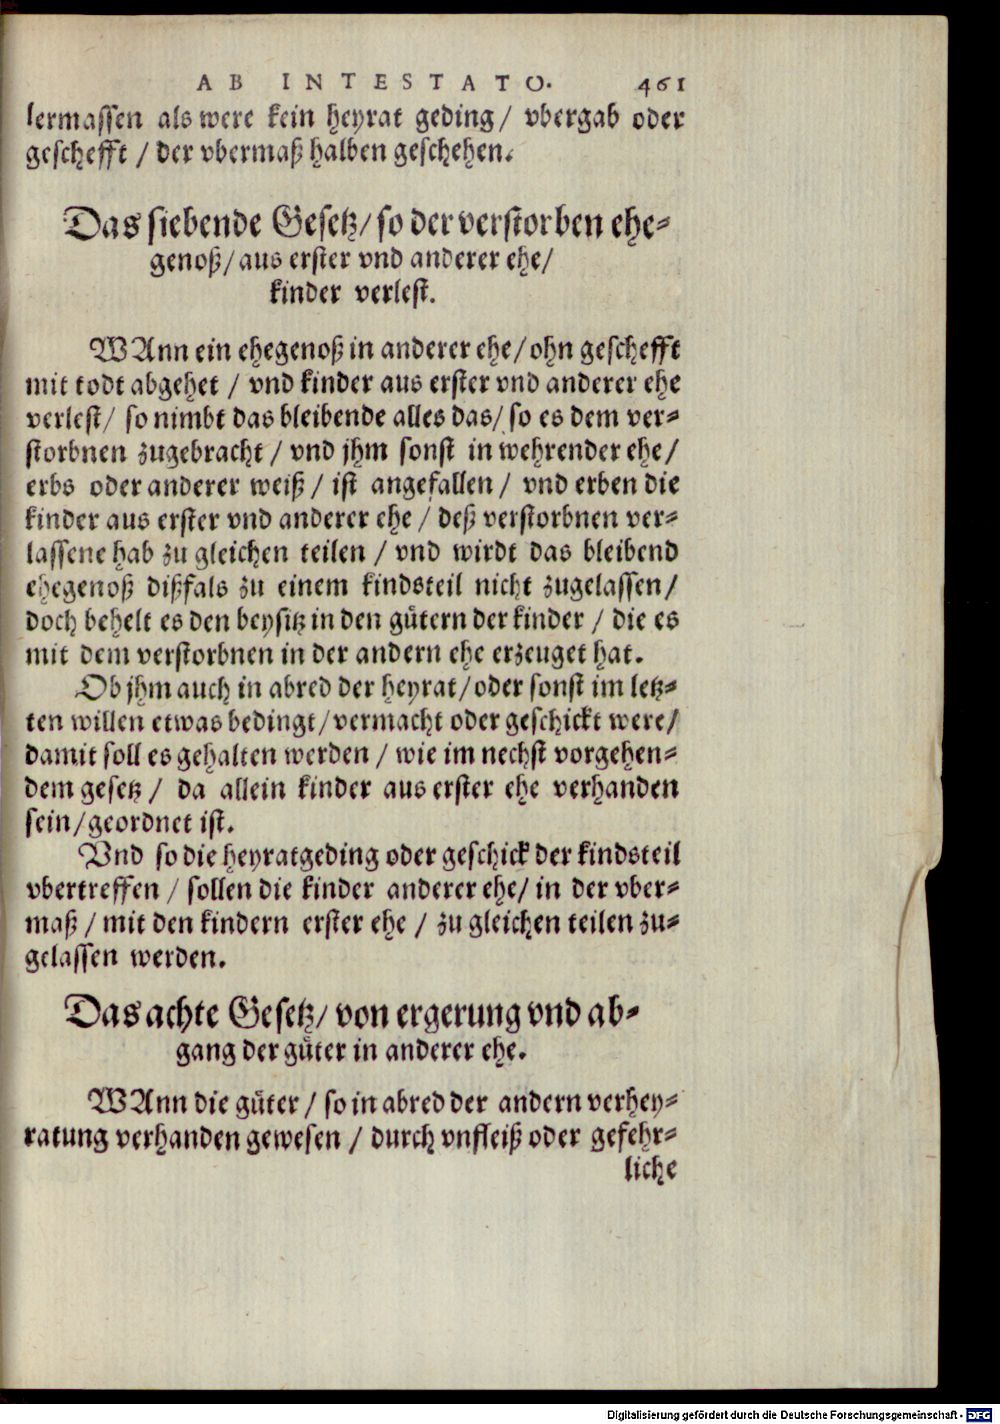 AB INTESTATO. 461
lermassen als were kein heyrat geding / vbergab oder
geschefft / der vbermaß halben geschehen.
Das siebende Gesetz / so der verstorben ehe-
genoß / aus erster vnd anderer ehe /
kinder verlest.
WAnn ein ehegenoß in anderer ehe / ohn geschefft
mit todt abgehet / vnd kinder aus erster vnd anderer ehe
verlest / so nimbt das bleibende alles das / so es dem ver-
storbnen zugebracht / vnd jhm sonst in wehrender ehe /
erbs oder anderer weiß / ist angefallen / vnd erben die
kinder aus erster vnd anderer ehe / deß verstorbnen ver-
lassene hab zu gleichen teilen / vnd wirdt das bleibend
ehegenoß dißfals zu einem kindsteil nicht zugelassen /
doch behelt es den beysitz in den gütern der kinder / die es
mit dem verstorbnen in der andern ehe erzeuget hat.
Ob jhm auch in abred der heyrat / oder sonst im letz-
ten willen etwas bedingt / vermacht oder geschickt were /
damit soll es gehalten werden / wie im nechst vorgehen-
dem gesetz / da allein kinder aus erster ehe verhanden
sein / geordnet ist.
Vnd so die heyratgeding oder geschick der kindsteil
vbertreffen / sollen die kinder anderer ehe / in der vber-
maß / mit den kindern erster ehe / zu gleichen teilen zu-
gelassen werden.
Das achte Gesetz / von ergerung vnd ab-
gang der güter in anderer ehe.
WAnn die güter / so in abred der andern verhey-
ratung verhanden gewesen / durch vnfleiß oder gefehr-
liche
Digitalisierung gefördert durch die Deutsche Forschungsgemeinschaft - DFG